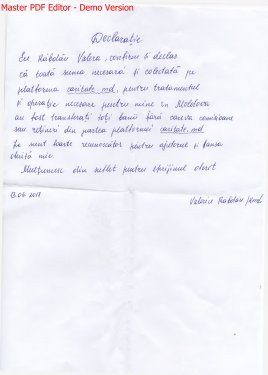 Master PDF Editor - Demo Version
Declarație
Eu Răbdău Valera, confirm și declar
că toată suma necesară și colectată pe
platforma caritate.md, pentru tratamentul
și operație necesare pentru mine în Moldova
au fost transferați toți banii fără careva comisioane
sau rețineri din partea platformei caritate.md
Le sunt foarte recunoscător pentru ajutorul și șansa
oferită mie.
Mulțumesc din suflet pentru sprijinul oferit
13.06.2018
Valeriu Rabdau